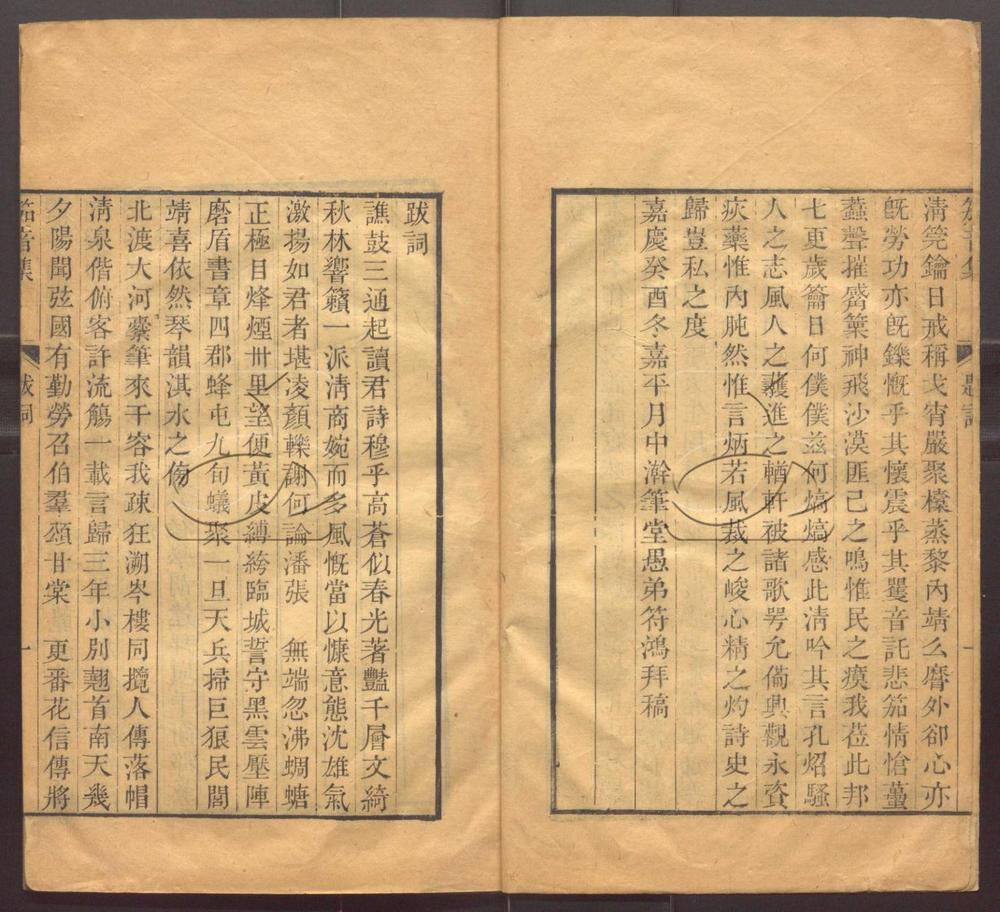 清筦鑰日戒稱戈宵嚴聚檬蒸黎內靖么麿外卻心亦
旣勞功亦旣鑠慨乎其懷震乎其音託悲笳情愴
蠡聲摧觱篥神飛沙漠匪己之鳴惟民之瘼我莅此邦
七更歲籥日何僕僕茲何熇熇感此清吟其言孔炤騷
人之志風人之進之輶軒被諸歌咢允倘與觀永資
疢藥惟內肫然惟言炳若風裁之峻心精之灼詩史之
歸豈私之度
嘉慶癸酉冬嘉平月中澣筆堂愚弟符鴻拜稿
跋詞
譙鼓三通起讀君詩穆乎高蒼似春光著豔千層文綺
秋林響籟一派清商婉而多風慨當以慷意態沈雄氣
激揚如君者堪凌顏轢謝何論潘張 無端忽沸蜩螗
正極目烽煙卅里望便黃皮縛絝臨城誓守黑雲壓陣
磨盾書章四郡蜂屯九旬蟻聚一旦天兵掃巨狼民閭
靖喜依然琴韻淇水之傍
北渡大河橐筆來干容我疎狂溯岑樓同攬人傳落帽
清泉偕俯客許流觴一載言歸三年小別翹首南天幾
夕陽聞弦國有勤勞召伯羣頌甘棠 更番花信傳將
笳音集 跋詞 一